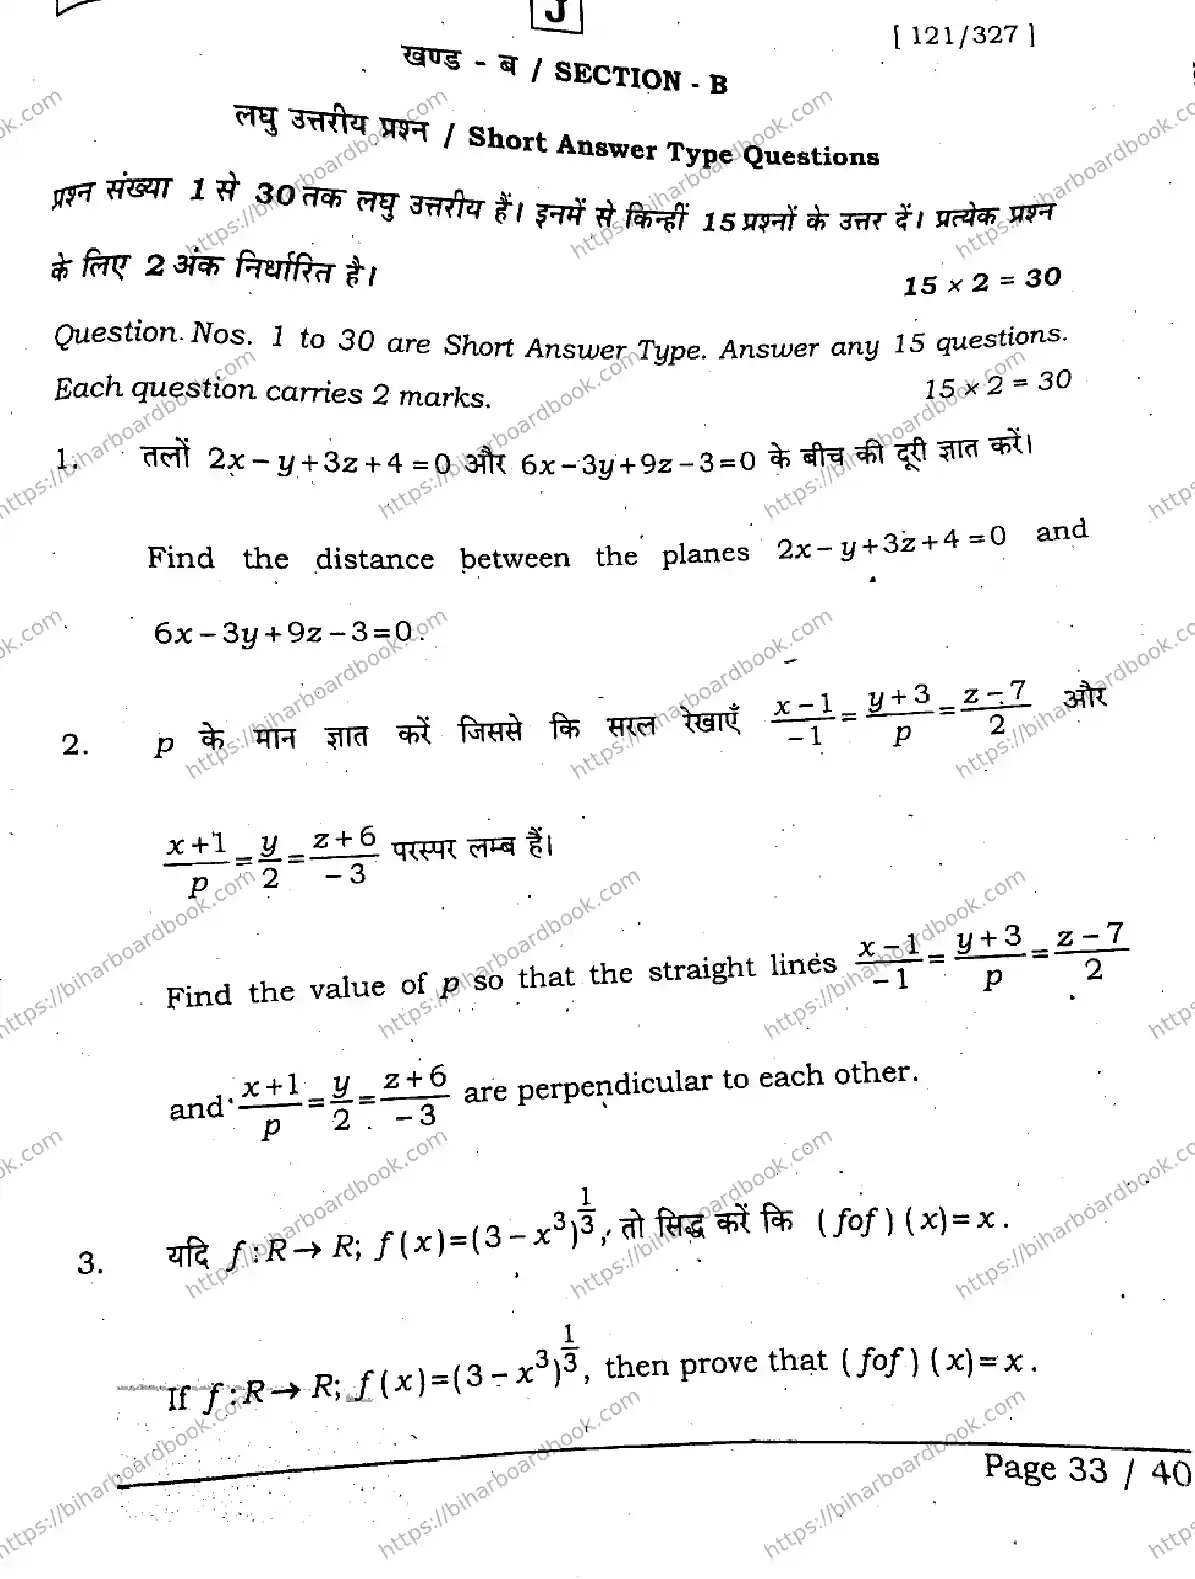 J
[ 121/327 ]
खण्ड - ब / SECTION - B
लघु उत्तरीय प्रश्न / Short Answer Type Questions
प्रश्न संख्या 1 से 30 तक लघु उत्तरीय हैं। इनमें से किन्हीं 15 प्रश्नों के उत्तर दें। प्रत्येक प्रश्न
के लिए 2 अंक निर्धारित है। 15 × 2 = 30
Question Nos. 1 to 30 are Short Answer Type. Answer any 15 questions.
Each question carries 2 marks. 15 × 2 = 30
1. तलों 2x – y + 3z + 4 = 0 और 6x – 3y + 9z – 3 = 0 के बीच की दूरी ज्ञात करें।
Find the distance between the planes 2x – y + 3z + 4 = 0 and
6x – 3y + 9z – 3 = 0.
2. p के मान ज्ञात करें जिससे कि सरल रेखाएँ (x – 1)/(–1) = (y + 3)/p = (z – 7)/2 और
(x + 1)/p = y/2 = (z + 6)/(–3) परस्पर लम्ब हैं।
Find the value of p so that the straight lines (x – 1)/(–1) = (y + 3)/p = (z – 7)/2
and (x + 1)/p = y/2 = (z + 6)/(–3) are perpendicular to each other.
3. यदि f : R → R; f(x) = (3 – x³)^(1/3), तो सिद्ध करें कि (fof)(x) = x.
If f : R → R; f(x) = (3 – x³)^(1/3), then prove that (fof)(x) = x.
Page 33 / 40
https://biharboardbook.com